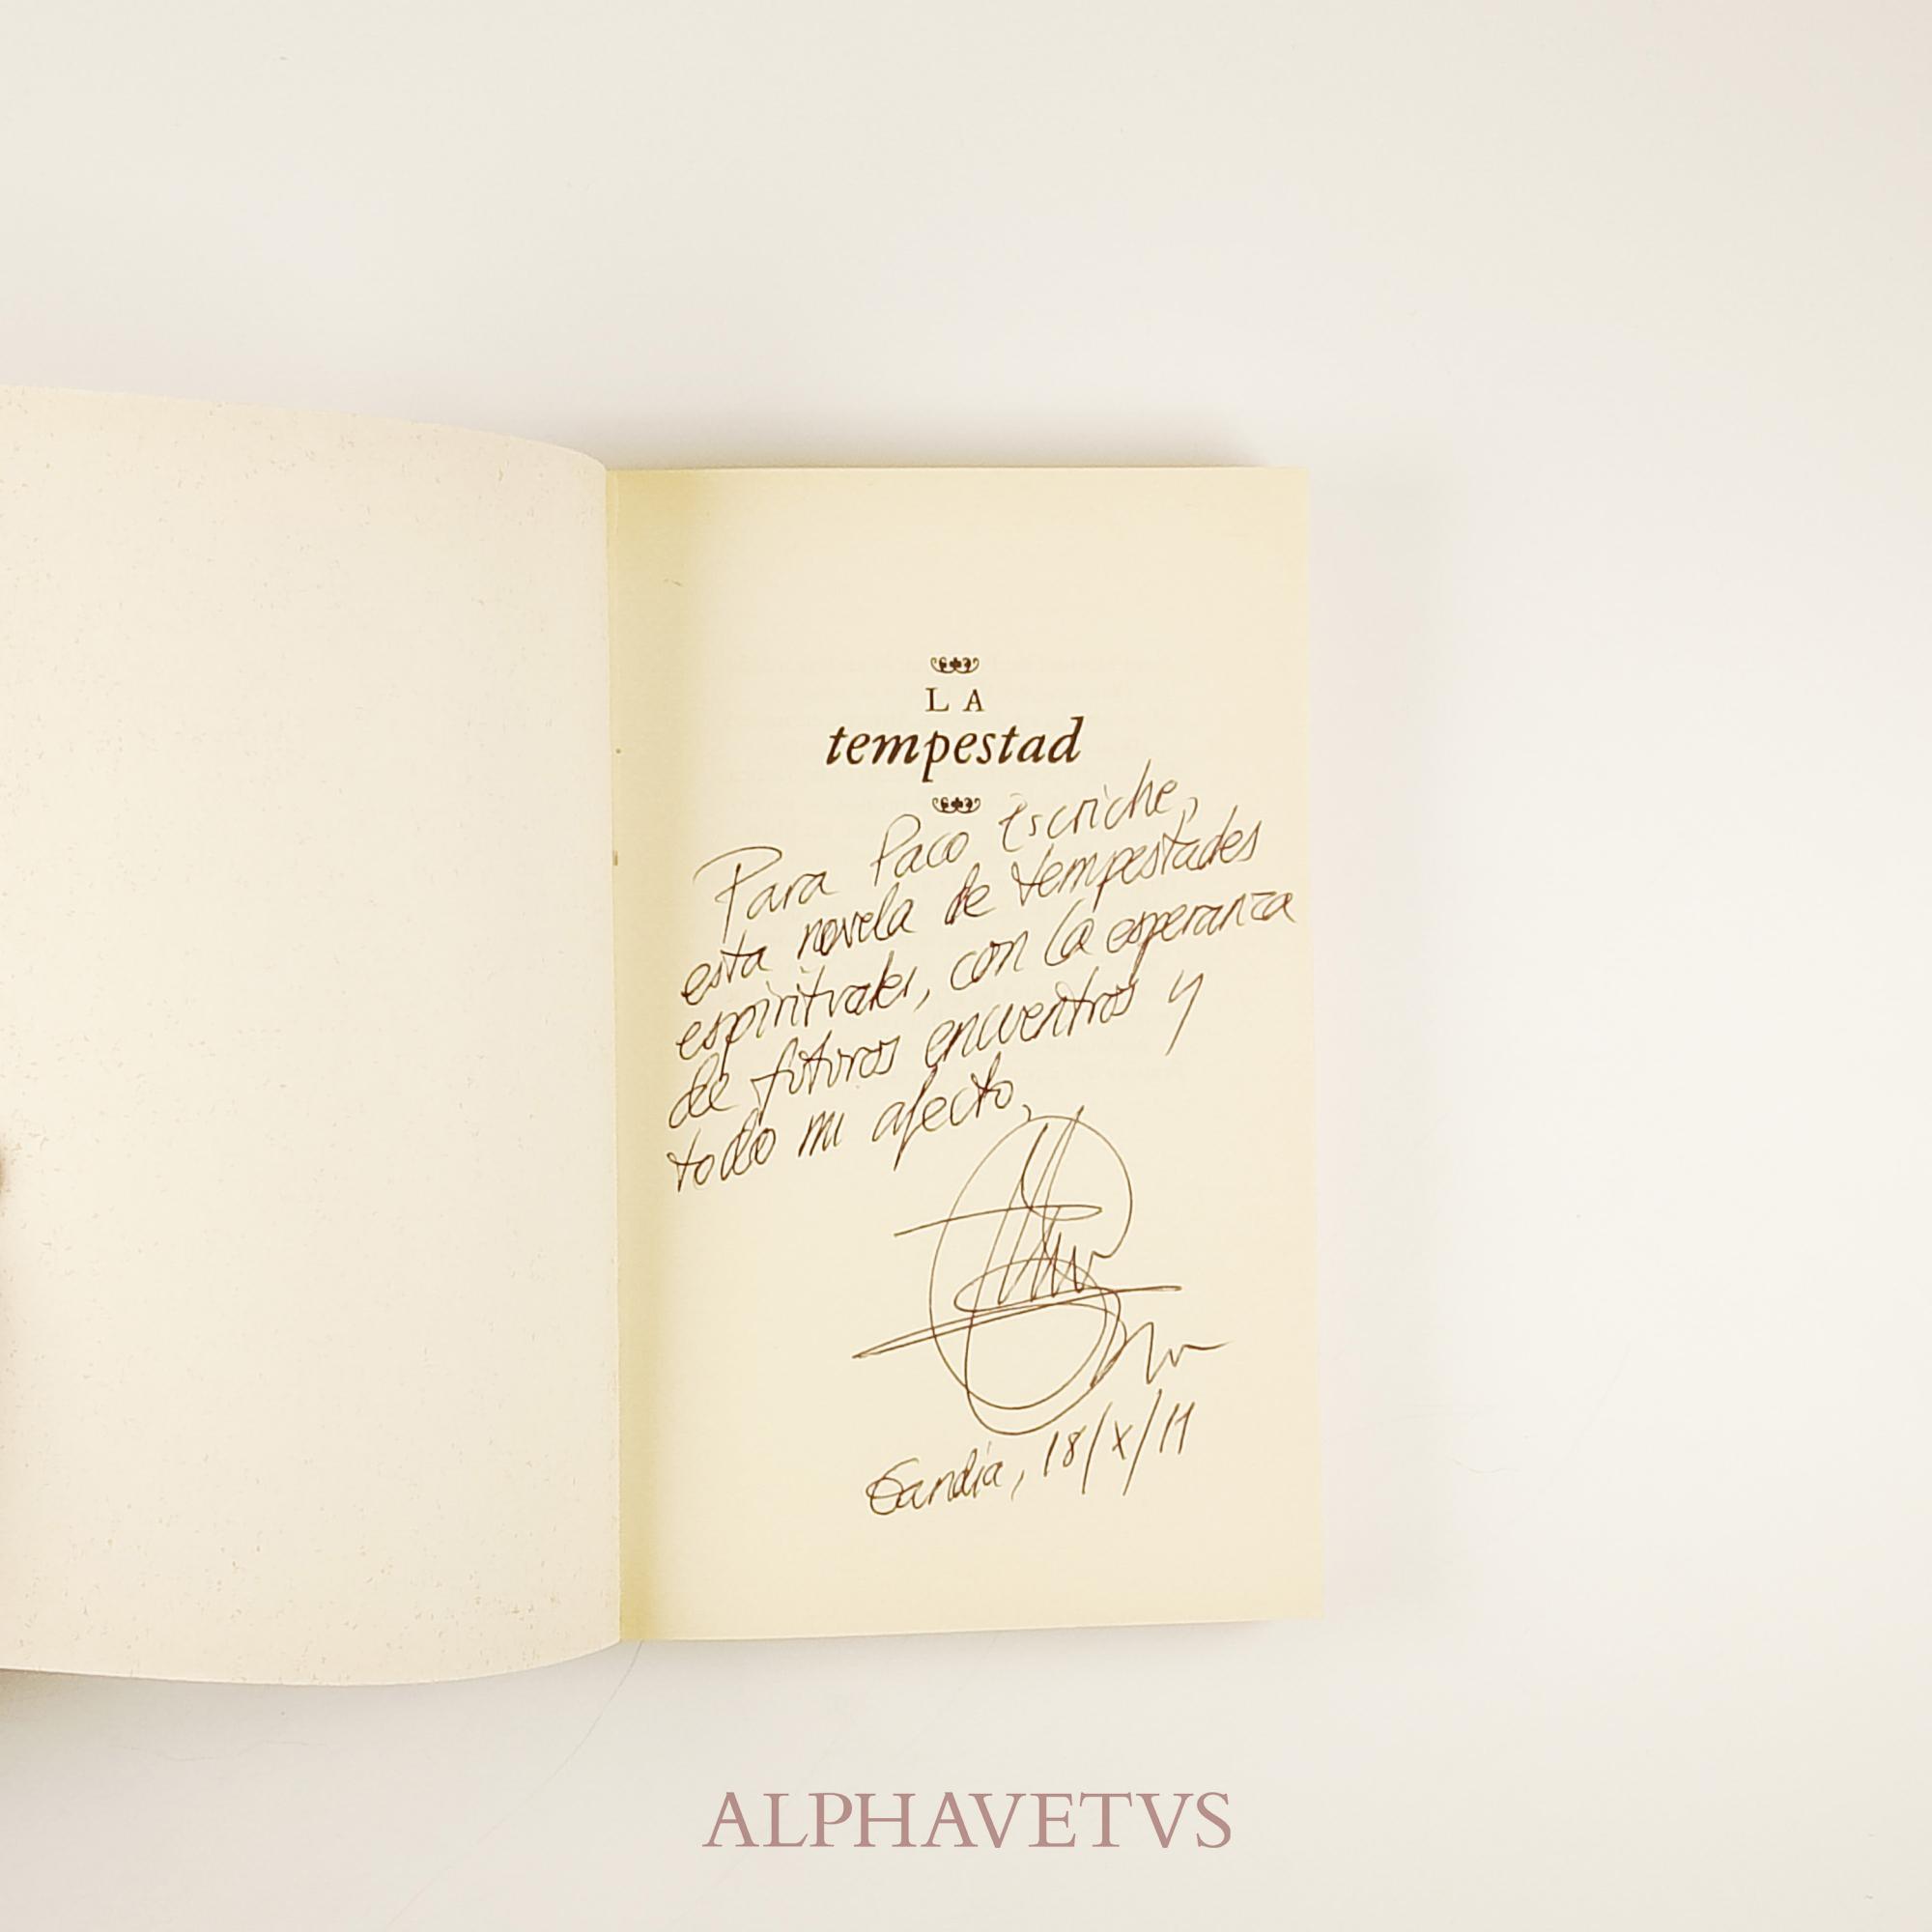 LA
tempestad
Para Paco Escriche,
esta novela de tempestades
espirituales, con la esperanza
de futuros encuentros y
todo mi afecto,
Gandía, 18/X/11
ALPHAVETVS